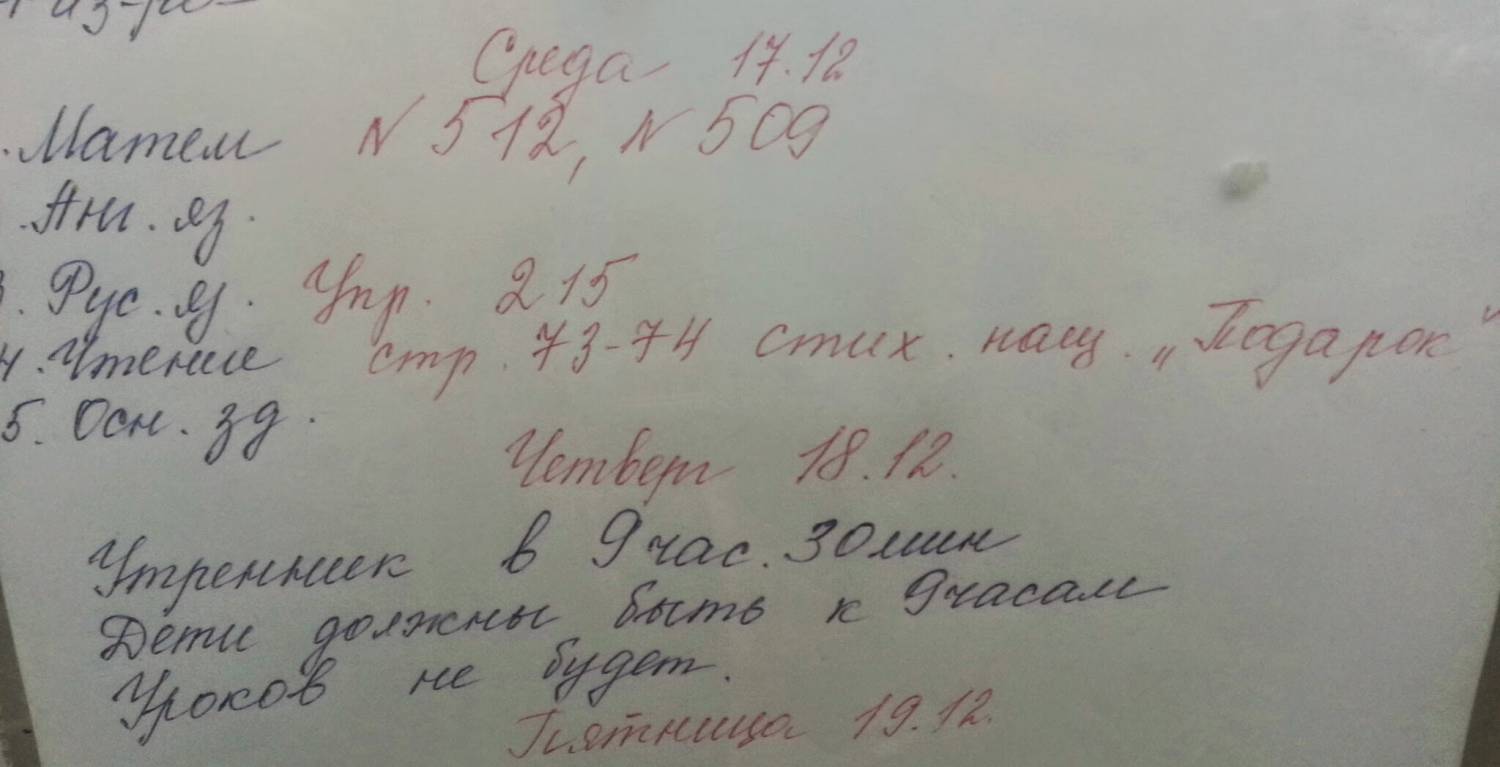 Среда 17.12
Матем N 512, N 509
Анг. яз.
3. Рус. яз. Упр. 215
4. Чтение стр. 73-74 стих. наиз. „Подарок"
5. Осн. зд.
Четверг 18.12.
Утренник в 9 час. 30 мин
Дети должны быть к 9 часам
Уроков не будет.
Пятница 19.12.